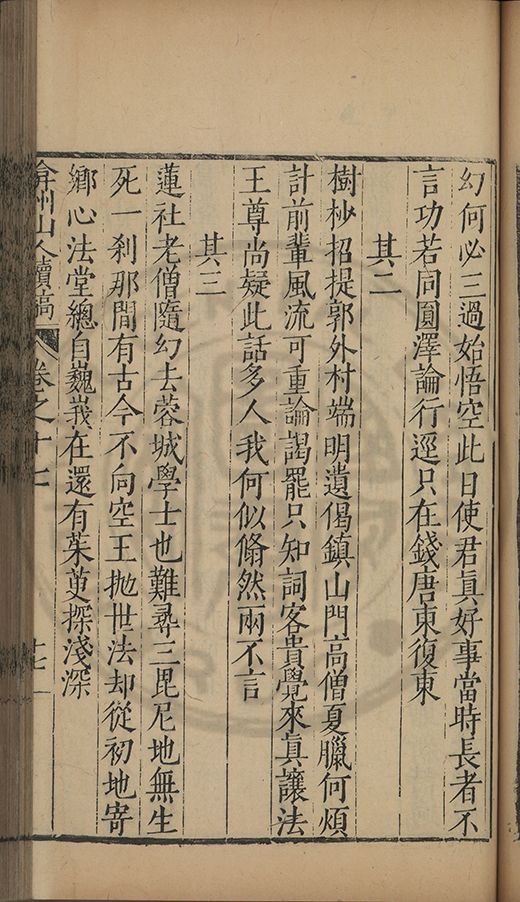 幻何必三過始悟空此日使君眞好事當時長者不
言功若同圓澤論行逕只在錢唐東復東
其二
樹杪招提郭外村端明遺偈鎮山門高僧夏臘何煩
計前輩風流可重論謁罷只知詞客貴覺來眞讓法
王尊尚疑此話多人我何似翛然兩不言
其三
蓮社老僧隨幻去蓉城學士也難尋三毘尼地無生
死一刹那間有古今不向空王抛世法却從初地寄
鄉心法堂總自巍峩在還有茱萸探淺深
弇州山人續稿 卷之十七 十七